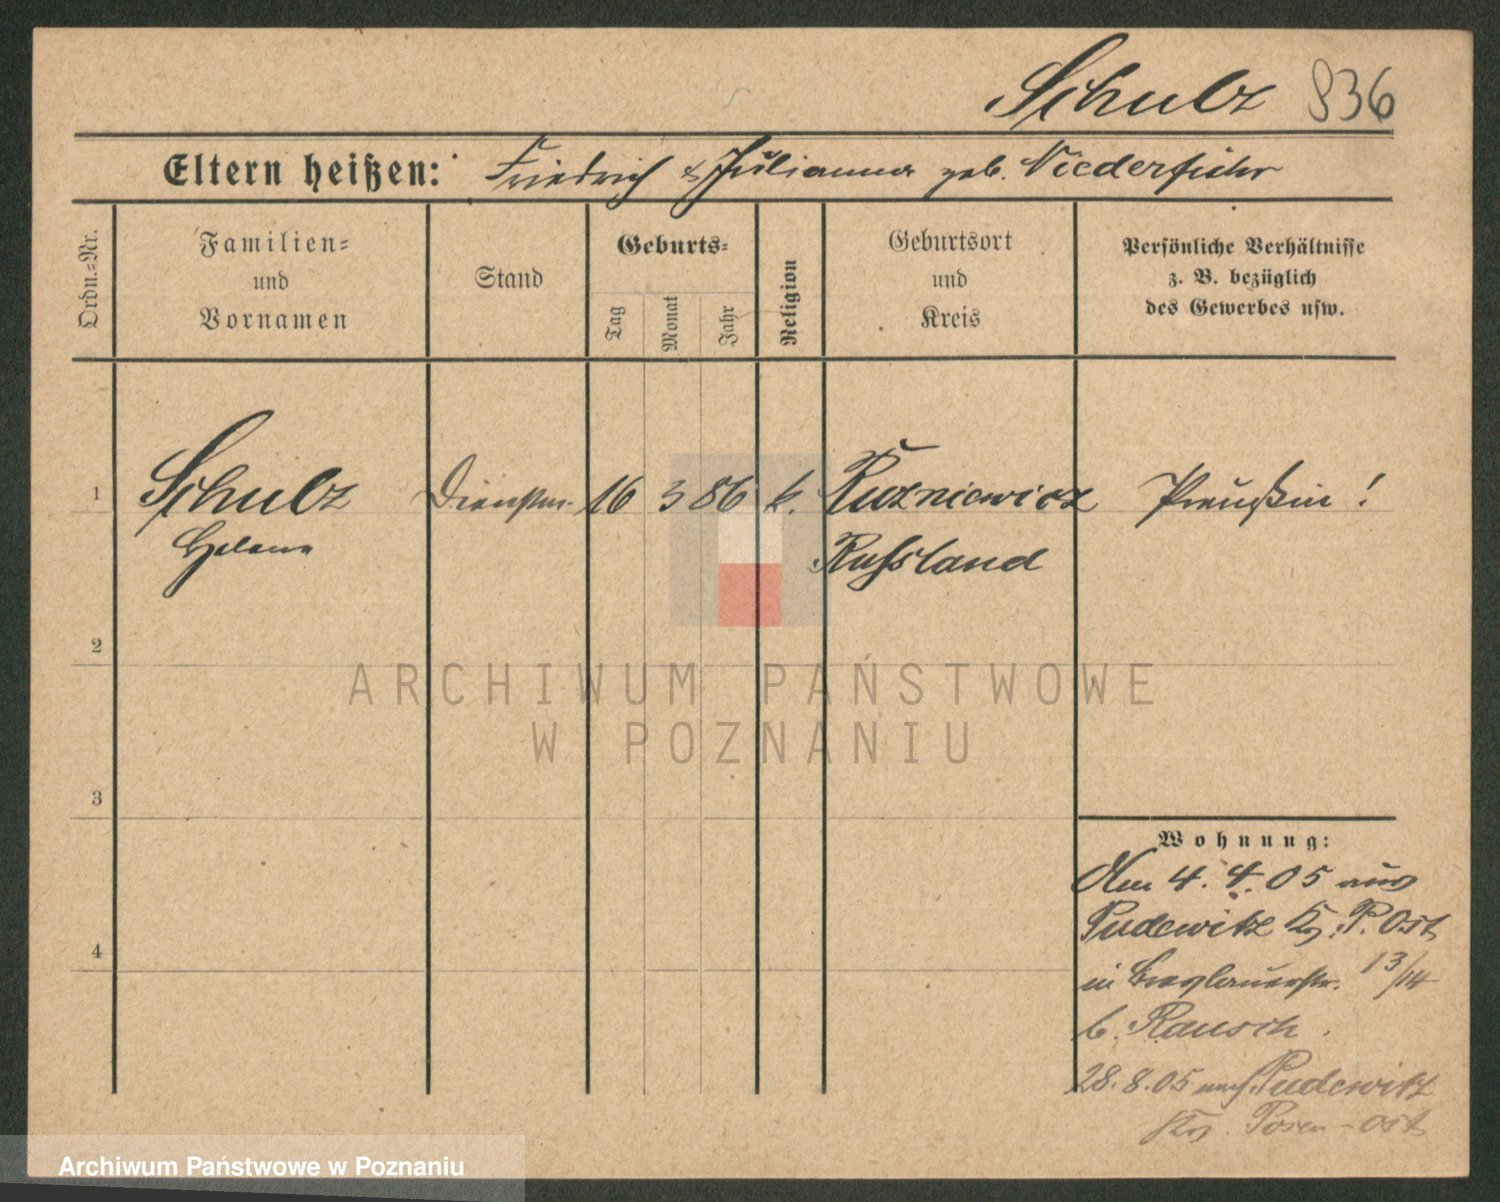 Schulz 836
Eltern heißen: Friedrich & Julianna geb. Niederführ
Ordn.=Nr.
Familien=
und
Vornamen
Stand
Geburts=
Tag
Monat
Jahr
Religion
Geburtsort
und
Kreis
Persönliche Verhältnisse
z. B. bezüglich
des Gewerbes usw.
1 Schulz Dienstm. 16 3 86 k. Kuzniewicz Preußin!
Helene Russland
2
ARCHIWUM PAŃSTWOWE
W POZNANIU
3
Wohnung:
Am 4. 4. 05 aus
Pudewitz Krs. P. Ost
4
in Breslauerstr. 13/14
b. Rausch.
28.8.05 nach Pudewitz
Krs. Posen-Ost
Archiwum Państwowe w Poznaniu